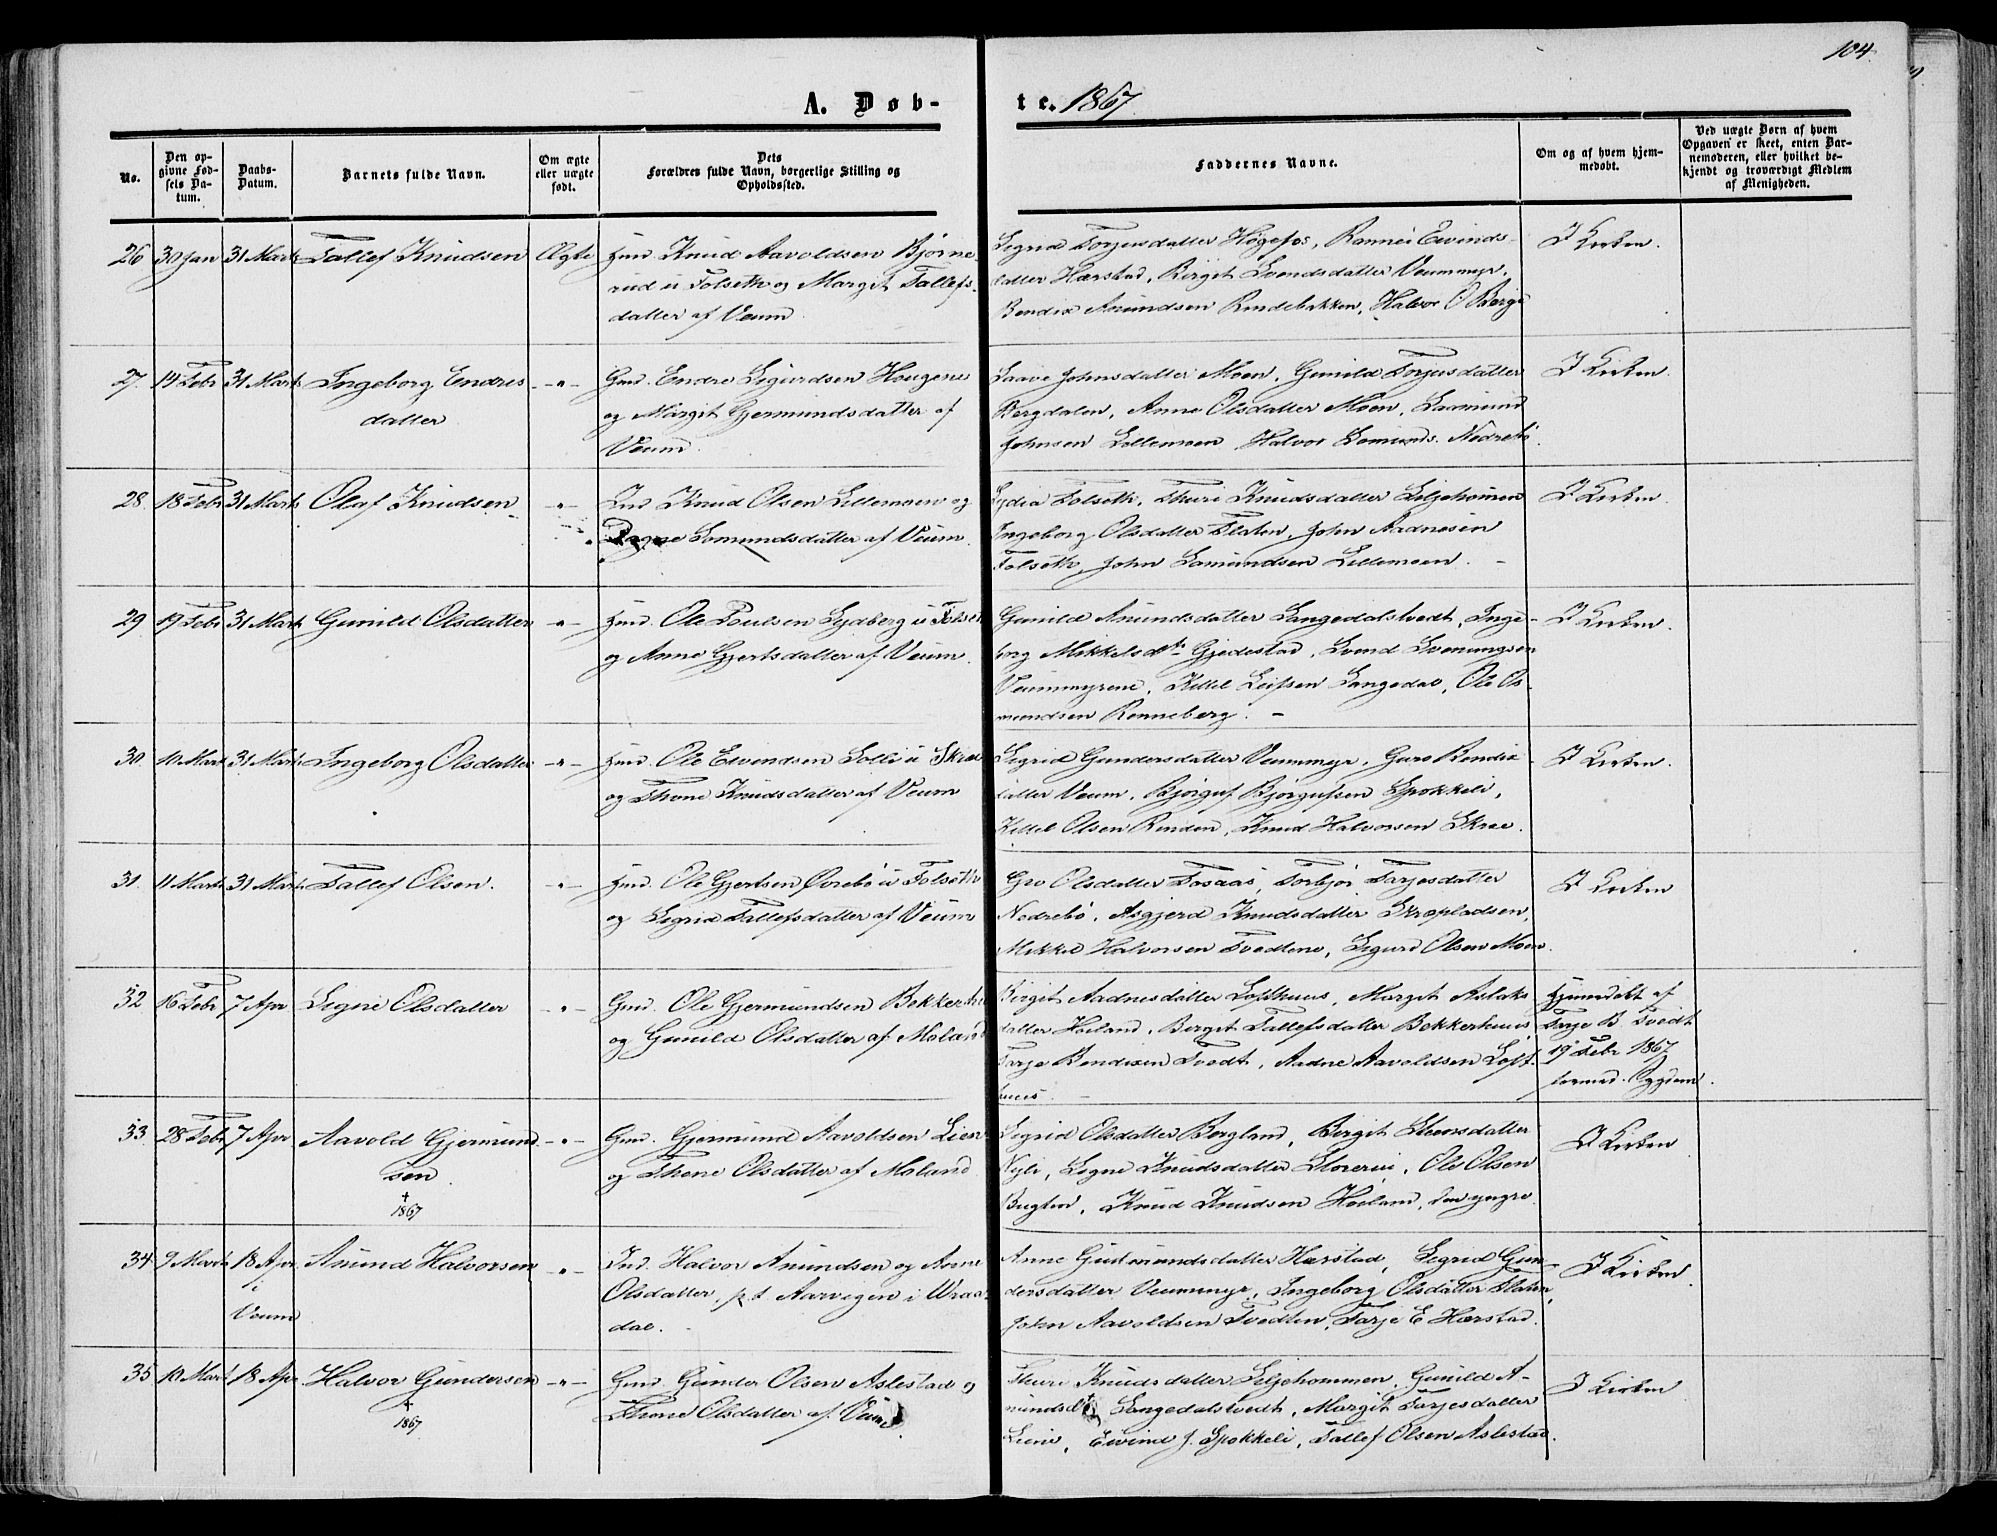 104.
A. Døb-
te. 1867
No.
Den op-
givne Fød-
sels Da-
tum.
Daabs-
Datum.
Barnets fulde Navn.
Om ægte
eller uægte
født.
Dets
Forældres fulde Navn, borgerlige Stilling og
Opholdssted.
Faddernes Navne.
Om og af hvem hjem-
medøbt.
Ved uægte Børn af hvem
Opgaven er skeet, enten Bar-
nemoderen, eller hvilket be-
kjendt og troværdigt Medlem
af Menigheden.
26 30 Jan 31 Marts Tallef Knudsen Ægte Hmd. Knud Aavoldsen Bjørne-
rud u Folseth og Margit Tallefs-
datter af Veum.
Sigrid Torjusdatter Høgefos, Rannei Eivinds-
datter Hærstad, Birgit Svendsdatter Veummyr,
Bendix Anundsen Rindebakken, Halvor O Berge
I Kirken.
27. 14 Febr 31 Marts Ingeborg Endres
datter -"- Gmd. Endre Sigurdsen Haugene
og Margit Gjermundsdatter af
Veum.
Saave Johnsdatter Moen, Gunild Torjusdatter
Bergdalen, Anne Olsdatter Moen, Saamund
Johnsen Lillemoen, Halvor Somunds. Nedrebø.
I Kirken.
28. 18 Febr 31 Marts Olaf Knudsen -"- Ind Knud Olsen Lillemoen og
Somundsdatter af Veum.
Lydia Folseth, Thuri Knudsdatter Siljehommen
Ingeborg Olsdatter Flaten, John Aadnesen
Folseth, John Samundsen Lillemoen. -
I Kirken.
29. 19 Febr 31 Marts Gunild Olsdatter -"- Hmd. Ole Poulsen Lydberg u Folset
og Anne Gjertsdatter af Veum.
Gunild Anundsdatter Langedalstvedt, Inge-
borg Mikkelsdtr Gjedestad, Svend Svenungsen
Veummyrene, Kittil Leifsen Langedal, Ole Os-
mundsen Renneberg. -
I Kirken.
30. 10 Mart 31 Marts Ingeborg Olsdatter -"- Hmd. Ole Eivindsen Solli u Skree
og Thone Knudsdatter af Veum
Sigrid Gundersdatter Veummyr, Guro Bendix-
datter Veum, Bjørguf Bjørgufsen Spokkeli,
Kittil Olsen Rinden, Knud Halvorsen Skree.
I Kirken.
31. 11 Marts 31 Marts Tallef Olsen. -"- Hmd. Ole Gjertsen Øvrebø u Folseth
og Sigrid Tallefsdatter af Veum
Gro Olsdatter Fosaas, Torbjør Tarjesdatter
Nedrebø, Asgjerd Knudsdatter Skropladsen,
Mikkel Halvorsen Tvedtene, Sigurd Olsen Moen.
I Kirken
32 16 Febr 7 Apr Signe Olsdatter -"- Gmd. Ole Gjermundsen Bekkerhu
og Gunild Olsdatter af Moland
Birgit Aadnesdatter Lofthuus, Margit Aslaks
datter Heiland, Birgit Tallefsdatter Bekkerhuus
Tarje Bendixen Tvedt, Aadne Aavoldsen Loft-
huus. -
Hjemmedøbt af
Tarje B. Tvedt
19 Febr 1867
33. 28 Febr 7 Apr Aavold Gjermund-
sen.
†
1867
-"- Gmd. Gjermund Aavoldsen Lien
og Thone Olsdatter af Moland
Sigrid Olsdatter Bergland, Birgit Steensdatter
Nyli, Signe Knudsdatter Storerui, Ole Olsen
Bugten, Knud Knudsen Heiland, den yngre.
I Kirken
34. 9 Marts 18 Apr
i
Veum
Anund Halvorsen -"- Ind. Halvor Anundsen og Anne
Olsdatter, p.t Aarvegen i Wraa-
dal.
Anne Gudmundsdatter Hærstad, Sigrid Gun-
dersdatter Veummyr, Ingeborg Olsdatter Flaten,
John Aavoldsen Tvedten, Tarje E Hærstad.
I Kirken.
35 10 Marts 18 Apr Halvor Gundersen
†
1867
-"- Gmd. Gunder Olsen Aslestad og
Thone Olsdatter af Veum.
Thuri Knudsdatter Siljehommen, Gunild A-
nundsdtr Langedalstvedt, Margit Tarjesdatter
Liene, Eivind J. Spokkeli, Tallef Olsen Aslestad.
I Kirken